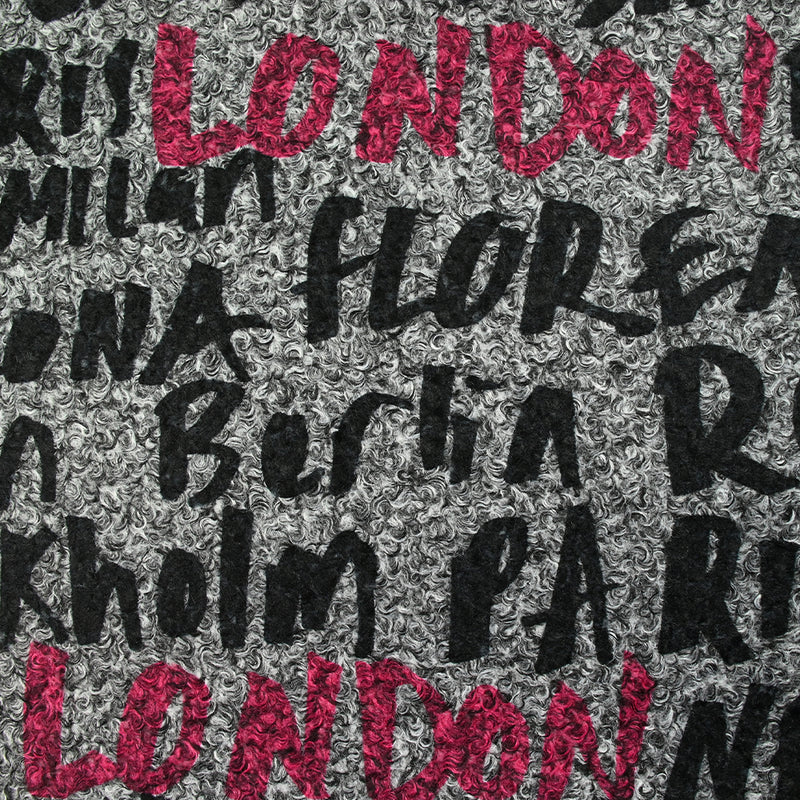 RIS LONDON
MILan
FLOREN
ONA
n Berlin R
kholm PARI
LONDON N